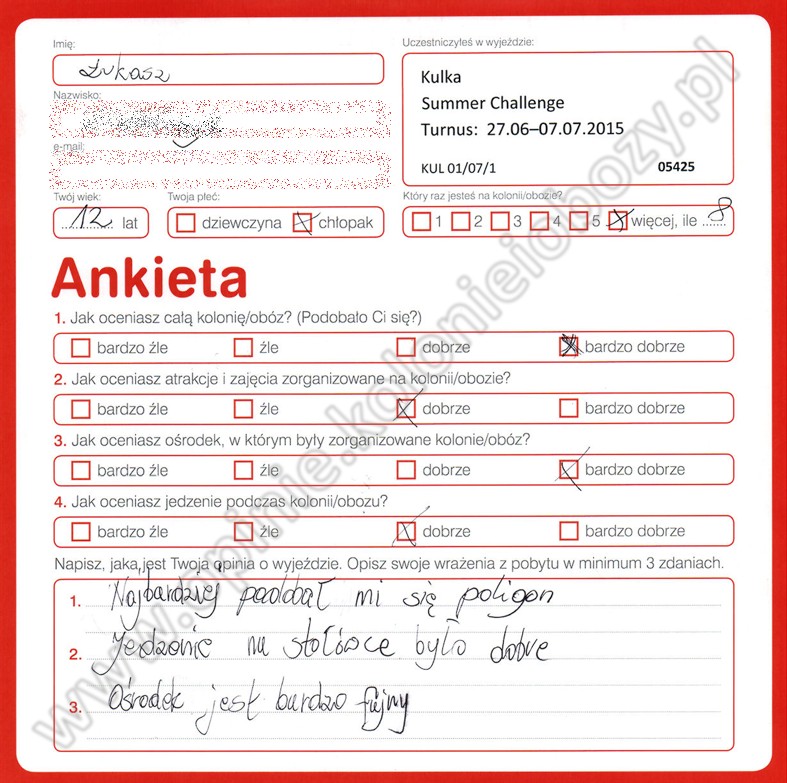 Imię:
Łukasz
Uczestniczyłeś w wyjeździe:
Kulka
Summer Challenge
Turnus: 27.06–07.07.2015
KUL 01/07/1 05425
Nazwisko:
e-mail:
Twój wiek:
12 lat
Twoja płeć:
dziewczyna chłopak
Który raz jesteś na kolonii/obozie?
1 2 3 4 5 więcej, ile 8
Ankieta
1. Jak oceniasz całą kolonię/obóz? (Podobało Ci się?)
bardzo źle źle dobrze bardzo dobrze
2. Jak oceniasz atrakcje i zajęcia zorganizowane na kolonii/obozie?
bardzo źle źle dobrze bardzo dobrze
3. Jak oceniasz ośrodek, w którym były zorganizowane kolonie/obóz?
bardzo źle źle dobrze bardzo dobrze
4. Jak oceniasz jedzenie podczas kolonii/obozu?
bardzo źle źle dobrze bardzo dobrze
Napisz, jaka jest Twoja opinia o wyjeździe. Opisz swoje wrażenia z pobytu w minimum 3 zdaniach.
1. Najbardziej paodobał mi się poligon
2. Jedzenie na stołówce było dobre
3. Ośrodek jest bardzo fajny
www.opinie.kolonieiobozy.pl